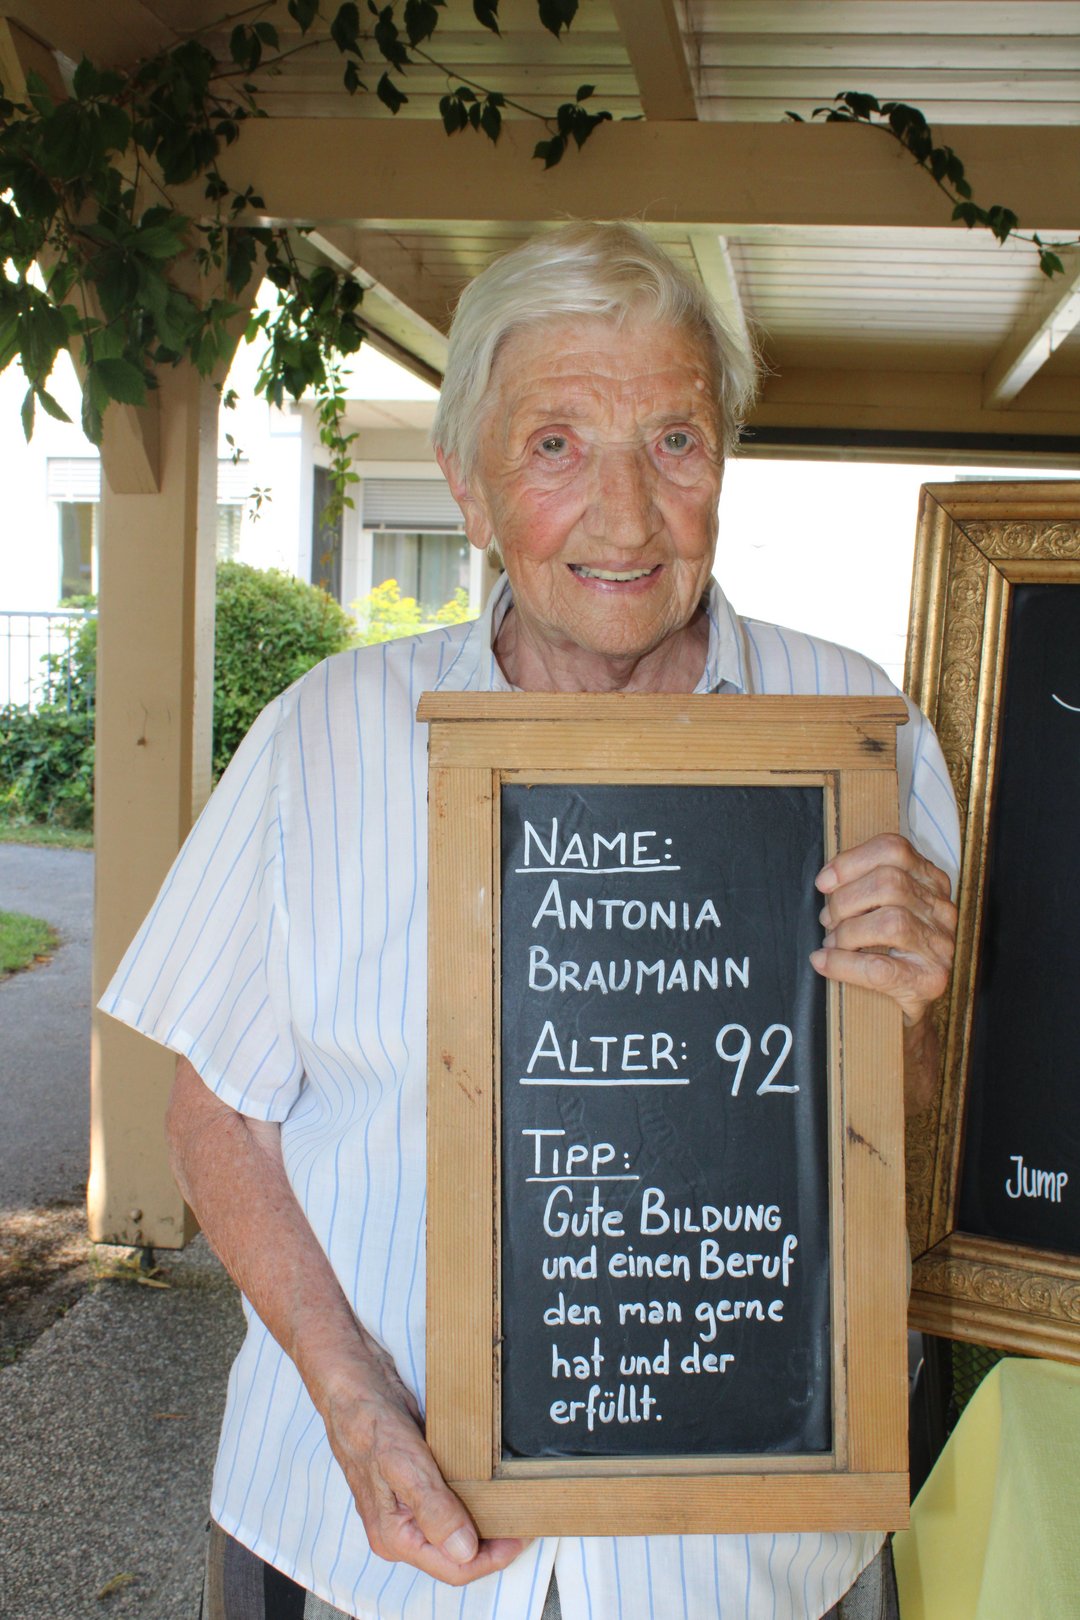 NAME:
ANTONIA
BRAUMANN
ALTER: 92
TIPP:
Gute BILDUNG
und einen Beruf
den man gerne
hat und der
erfüllt.
Jump